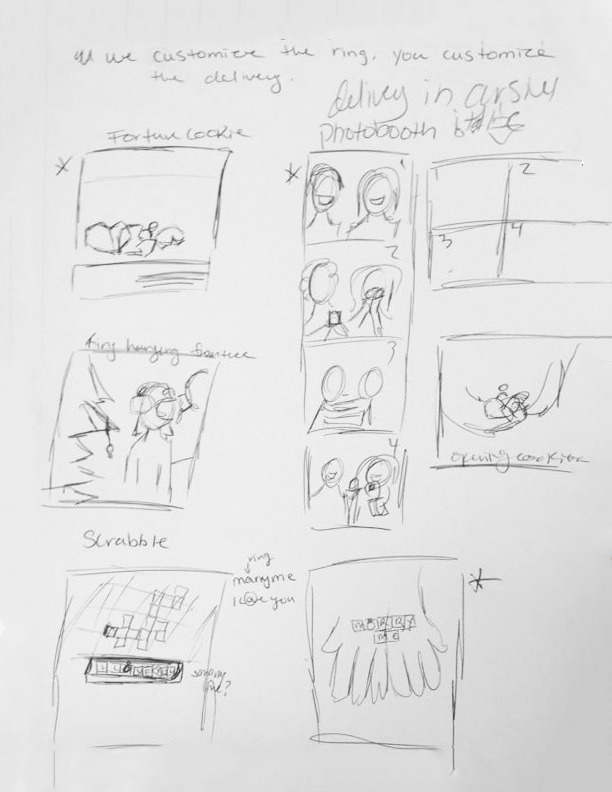 we customize the ring, you customize
the delivery.
delivery in
photobooth
Fortune cookie
1
2
3
4
1
2
3
4
ring hanging from tree
opening cookies
Scrabble
ring
marry me
I love you
MARRY
ME